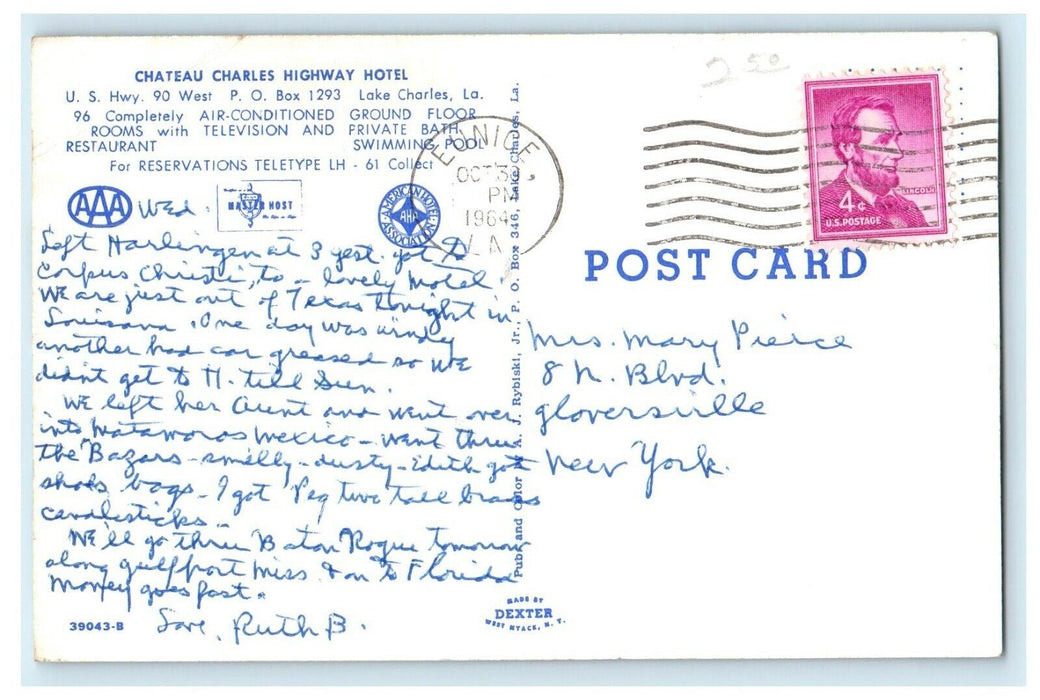 CHATEAU CHARLES HIGHWAY HOTEL
U. S. Hwy. 90 West P. O. Box 1293 Lake Charles, La.
96 Completely AIR-CONDITIONED GROUND FLOOR
ROOMS with TELEVISION AND PRIVATE BATH
RESTAURANT SWIMMING POOL
For RESERVATIONS TELETYPE LH - 61 Collect
AAA
MASTER HOST
AMERICAN HOTEL
AHA
ASSOCIATION
Wed.
Left Harlingen at 3 yest. got to
Corpus Christi, to a lovely Motel.
We are just out of Texas tonight in
Louisana. One day was windy
another had car greased so we
didnt get to H. till Sun.
We left her Aunt and went over
into Matamoros Mexico - went thru
the Bazars - smelly - dusty - Edith got
bags - I got Peg two tall brass
candlesticks -
We'll go thru Baton Rogue tomorrow
along gulfport Miss. & on to Florida
Money goes fast.
Love, Ruth B.
39043-B
Pub. and Color by A. J. Rybiski, Jr., P. O. Box 346, Lake Charles, La.
MADE BY
DEXTER
WEST NYACK, N. Y.
2 50
EUNICE,
OCT
PM
1964
LA
LINCOLN
4¢
U.S. POSTAGE
POST CARD
Mrs. Mary Pierce
8 N. Blvd.
Gloversville
New York.